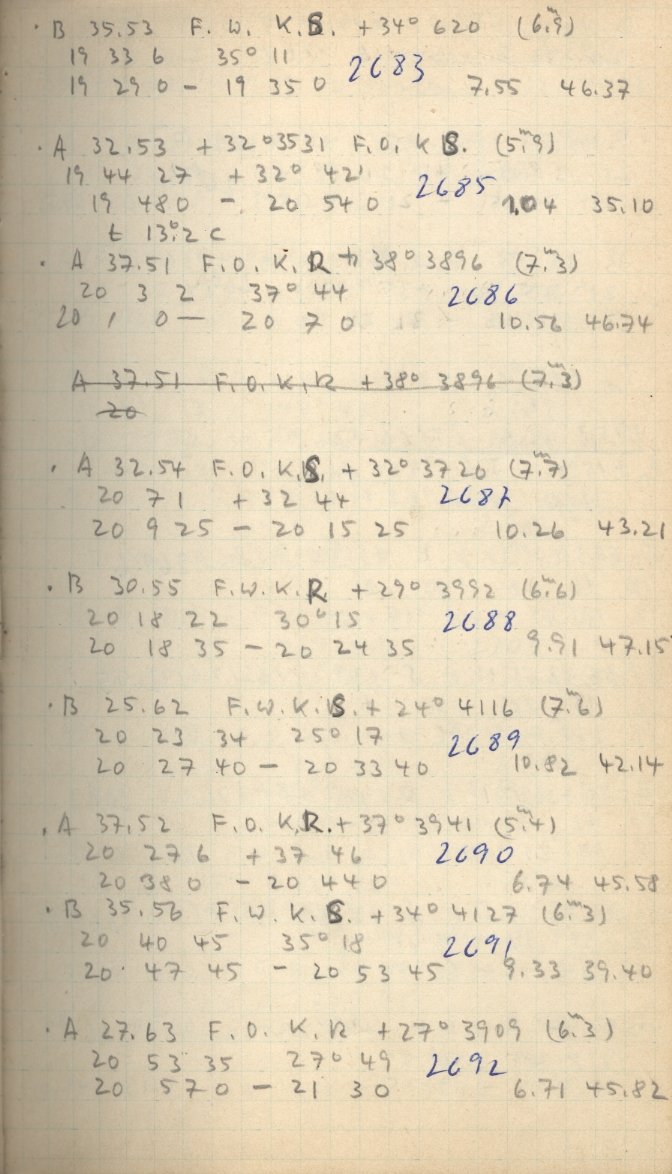 · B 35.53 F. W. K. S. +34° 620 (6.ᵐ9)
19 33 6 35° 11 2683
19 29 0 — 19 35 0 7.55 46.37
· A 32.53 +32°3531 F.O. K S. (5.ᵐ9)
19 44 27 +32° 42' 2685
19 48 0 — 20 54 0 1.04 35.10
t 13°.2 C
· A 37.51 F. O. K. R + 38° 3896 (7.ᵐ3)
20 3 2 37° 44 2686
20 1 0 — 20 7 0 10.56 46.74
A 37.51 F. O. K. R +38° 3896 (7.ᵐ3)
20
· A 32.54 F. O. K. S. + 32° 3720 (7.ᵐ7)
20 7 1 +32 44 2687
20 9 25 — 20 15 25 10.26 43.21
· B 30.55 F.W.K.R + 29° 3992 (6.ᵐ6)
20 18 22 30°15 2688
20 18 35 — 20 24 35 9.91 47.15
· B 25.62 F.W.K.S. + 24° 4116 (7.ᵐ6)
20 23 34 25° 17 2689
20 27 40 — 20 33 40 10.82 42.14
· A 37.52 F. O. K. R. + 37° 3941 (5.ᵐ4)
20 27 6 +37 46 2690
20 38 0 — 20 44 0 6.74 45.58
· B 35.56 F. W. K. S. +34° 4127 (6.ᵐ3)
20 40 45 35° 18 2691
20 47 45 — 20 53 45 9.33 39.40
· A 27.63 F. O. K. R +27° 3909 (6.ᵐ3)
20 53 35 27° 49 2692
20 57 0 — 21 3 0 6.71 45.82